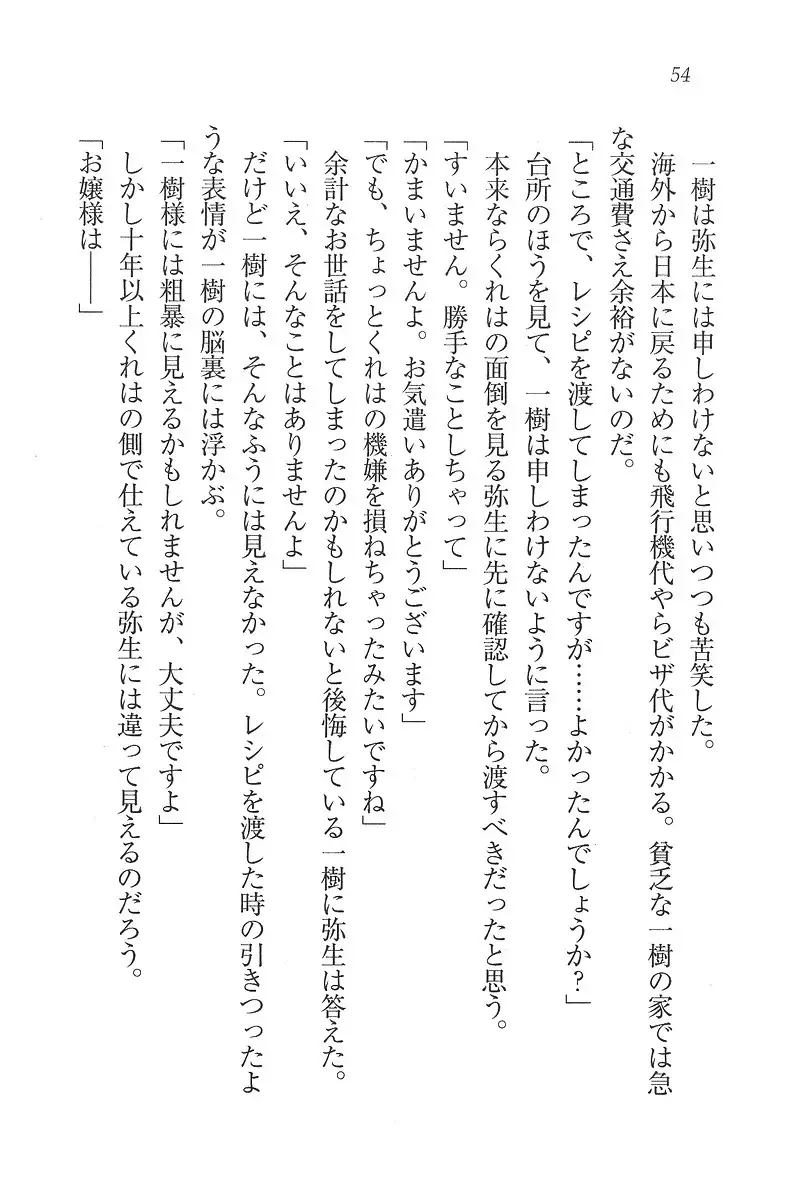 54
一樹は弥生には申しわけないと思いつつも苦笑した。
海外から日本に戻るためにも飛行機代やらビザ代がかかる。貧乏な一樹の家では急
な交通費さえ余裕がないのだ。
「ところで、レシピを渡してしまったんですが……よかったんでしょうか？」
台所のほうを見て、一樹は申しわけないように言った。
本来ならくれはの面倒を見る弥生に先に確認してから渡すべきだったと思う。
「すいません。勝手なことしちゃって」
「かまいませんよ。お気遣いありがとうございます」
「でも、ちょっとくれはの機嫌を損ねちゃったみたいですね」
余計なお世話をしてしまったのかもしれないと後悔している一樹に弥生は答えた。
「いいえ、そんなことはありませんよ」
だけど一樹には、そんなふうには見えなかった。レシピを渡した時の引きつったよ
うな表情が一樹の脳裏には浮かぶ。
「一樹様には粗暴に見えるかもしれませんが、大丈夫ですよ」
しかし十年以上くれはの側で仕えている弥生には違って見えるのだろう。
「お嬢様は――」